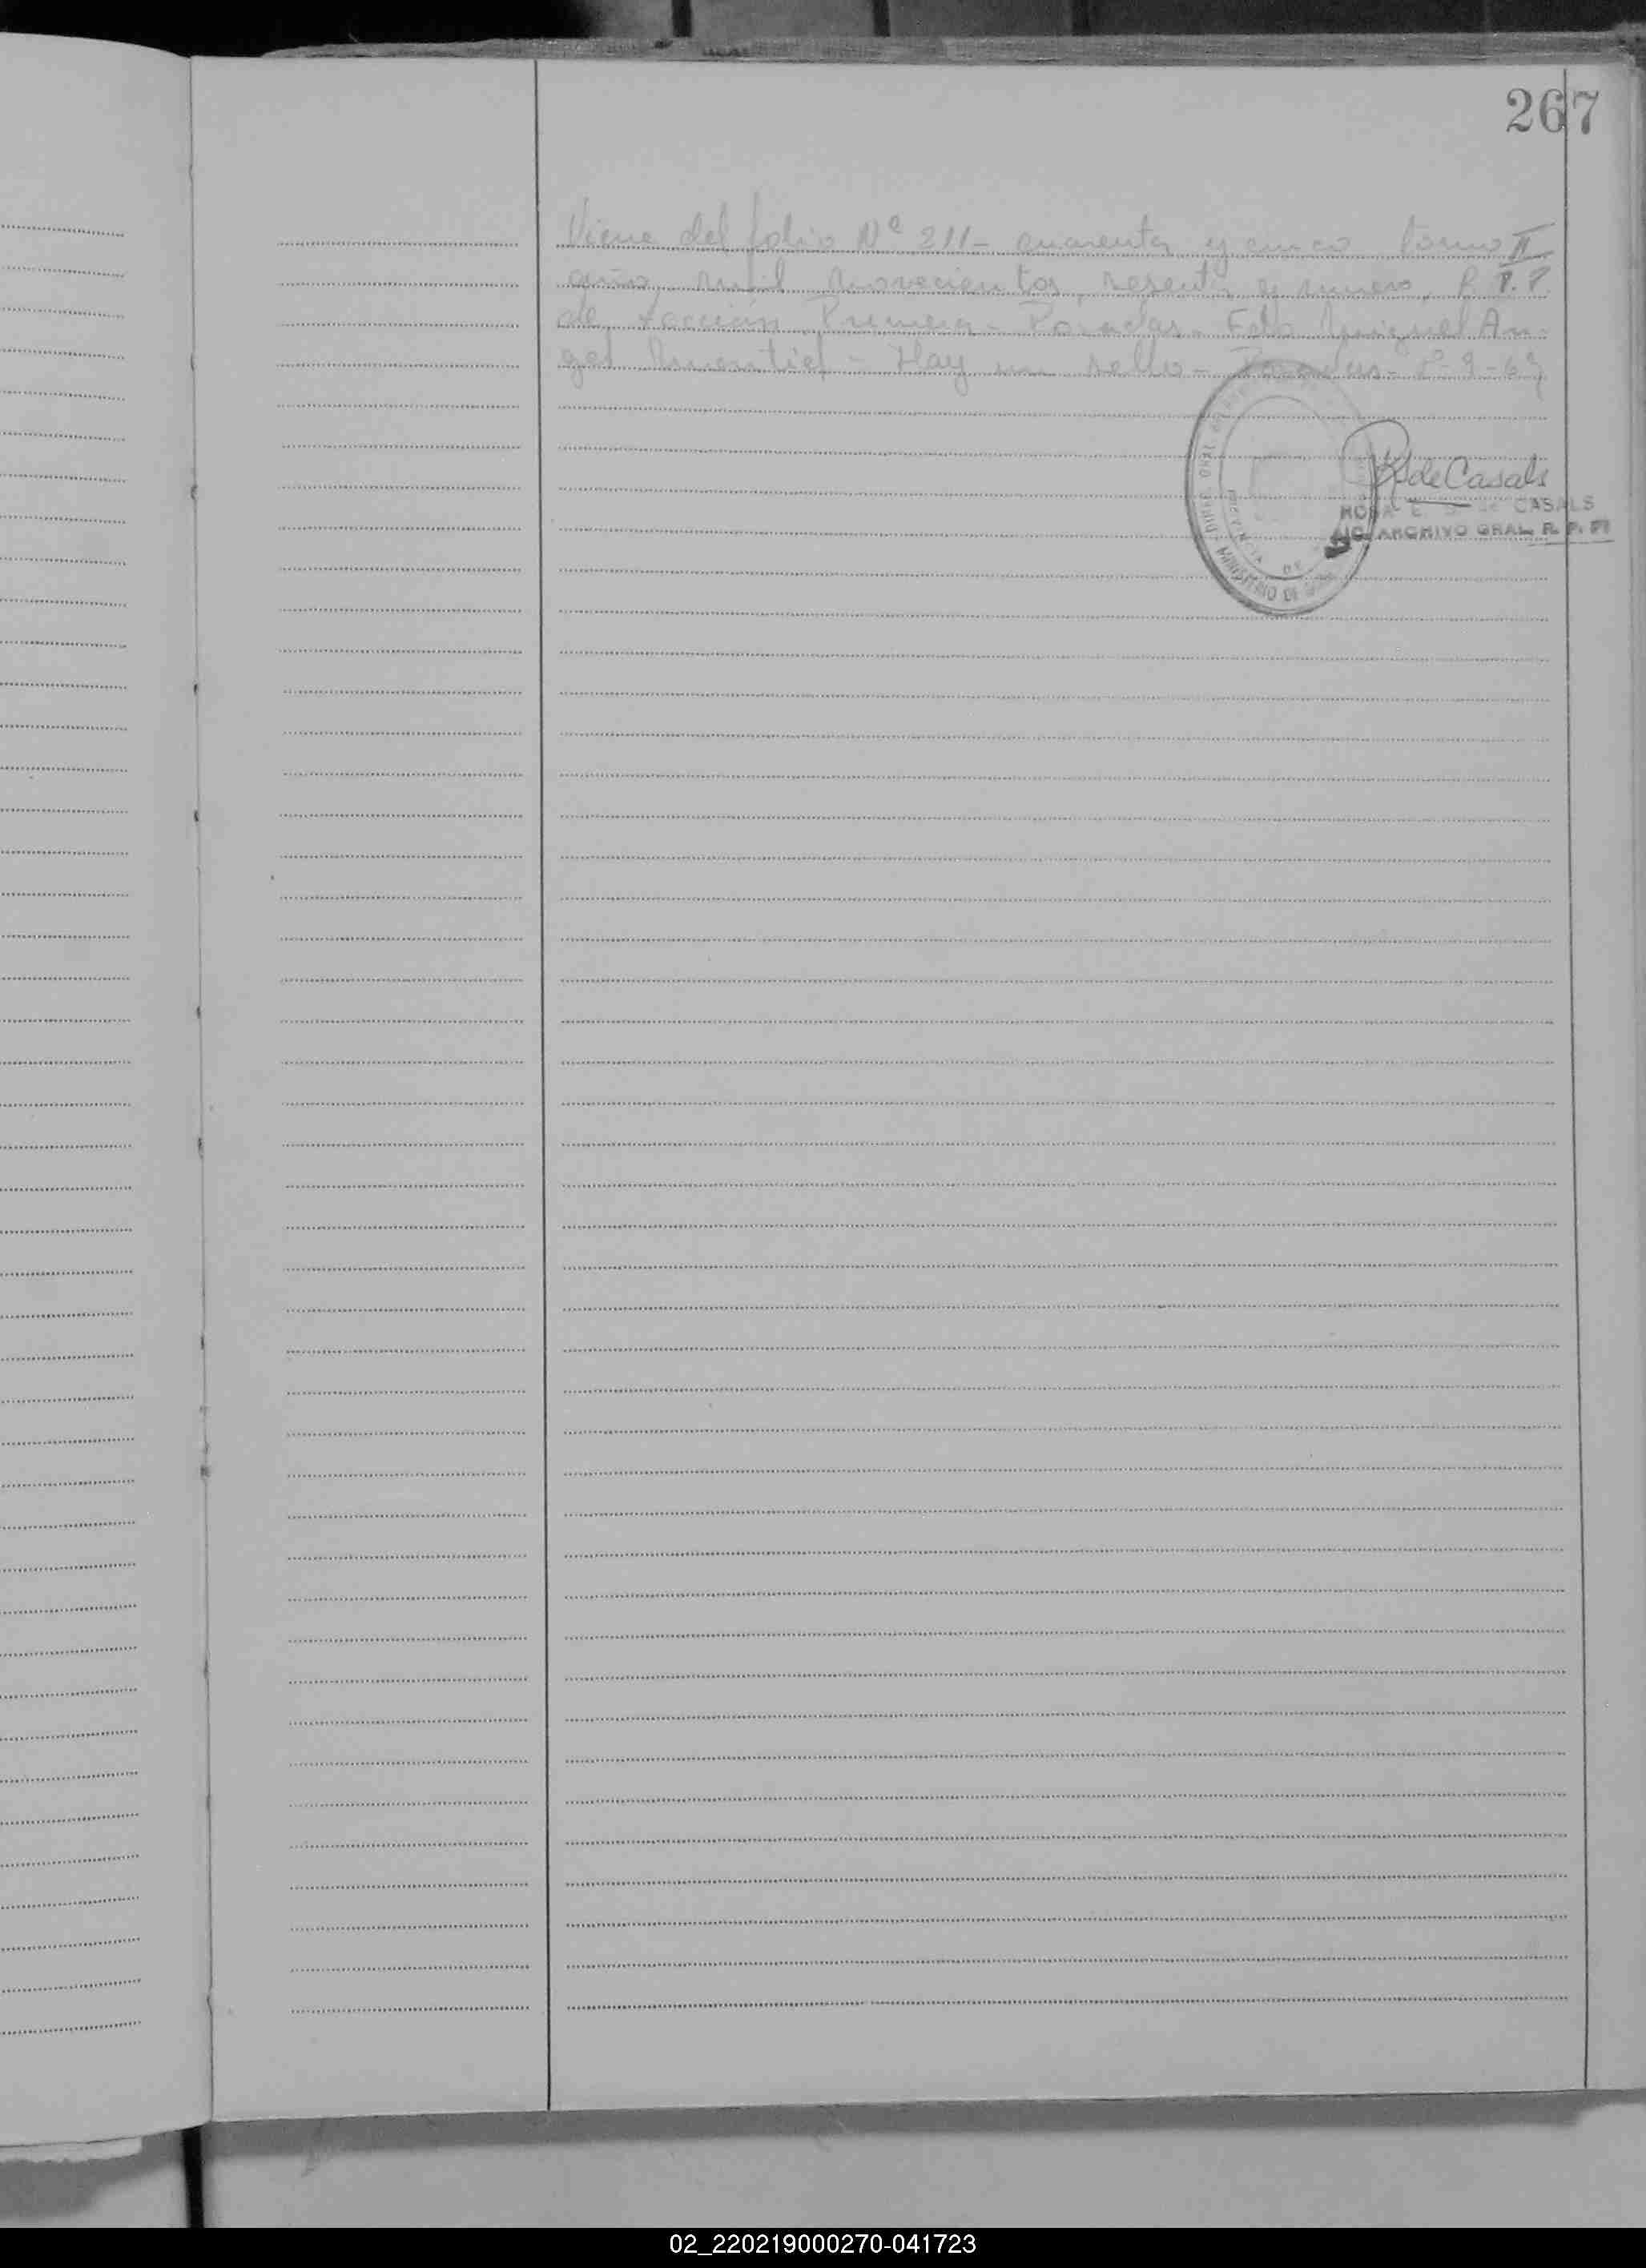 267
Viene del folio Nº 211 - cuarenta y cinco tomo II
año mil novecientos sesenta y nueve, R. P. P.
de Sección Primera - Posadas - Fdo Miguel An-
gel - Hay un sello - Posadas - 2-9-69
de Casals
ROSA E. de CASALS
ARCHIVO GRAL R. P. P.
MINISTERIO DE
PROVINCIA DE
02_220219000270-041723